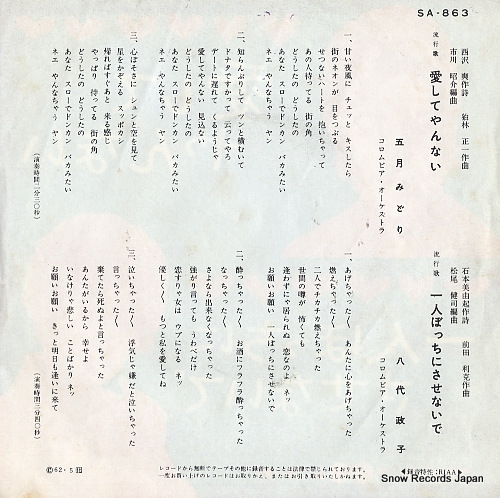 SA-863
西沢 爽作詩 狛林 正一作曲
市川 昭介編曲
流行歌
愛してやんない
五月 みどり
コロムビア・オーケストラ
一、甘い夜風に チュッと キスしたら
街のネオンが 目をつぶる
せつないハートを 抱いちゃって
あの人待ってる 街の角
どうしたの どうしたの
あなた スローでドンカン バカみたい
ネエ やんなちゃう ヤン
二、知らんぷりして ツンと横むいて
ドナタですかって 云ってやろ
デートに遅れて くるようじゃ
愛してやんない 見込ない
どうしたの どうしたの
あなた スローでドンカン バカみたい
ネエ やんなちゃう ヤン
三、心ぼそさに シュンと空を見て
星をかぞえる スッポカシ
帰ればすぐあと 来る感じ
やっぱり 待ってる 街の角
どうしたの どうしたの
あなた スローでドンカン バカみたい
ネエ やんなちゃう ヤン
(演奏時間二分三〇秒)
石本美由起作詩 前田 利克作曲
松尾 健司編曲
流行歌
一人ぼっちにさせないで
八代 政子
コロムビア・オーケストラ
一、あげちゃった〱 あんたに心をあげちゃった
燃えちゃった〱
二人でチカチカ燃えちゃった
世間の噂が 怖くても
逢わずにゃ居られぬ 恋なのよ ネッ
お願いお願い 一人ぼっちにさせないで
二、酔っちゃった〱 お酒にフラフラ酔っちゃった
なっちゃった〱
さよなら出来なくなっちゃった
強がり言っても うわべだけ
恋すりゃ女は ウブになる ネッ
優しく〱 もっと私を愛してね
三、泣いちゃった〱 浮気じゃ嫌だと泣いちゃった
言っちゃった〱
棄てたら死ぬよと言っちゃった
あんたがいるから 幸せよ
いなけりゃ悲しい ことばかり ネッ
お願いお願い きっと明日も逢いに来て
(演奏時間三分四〇秒)
レコードから無断でテープその他に録音することは法律で禁じられております。
一度お買い上げのレコードはお取りかえ、またはお引き取りいたしかねます。
◀録音特性:RIAA▶
Ⓒ62・5
Snow Records Japan